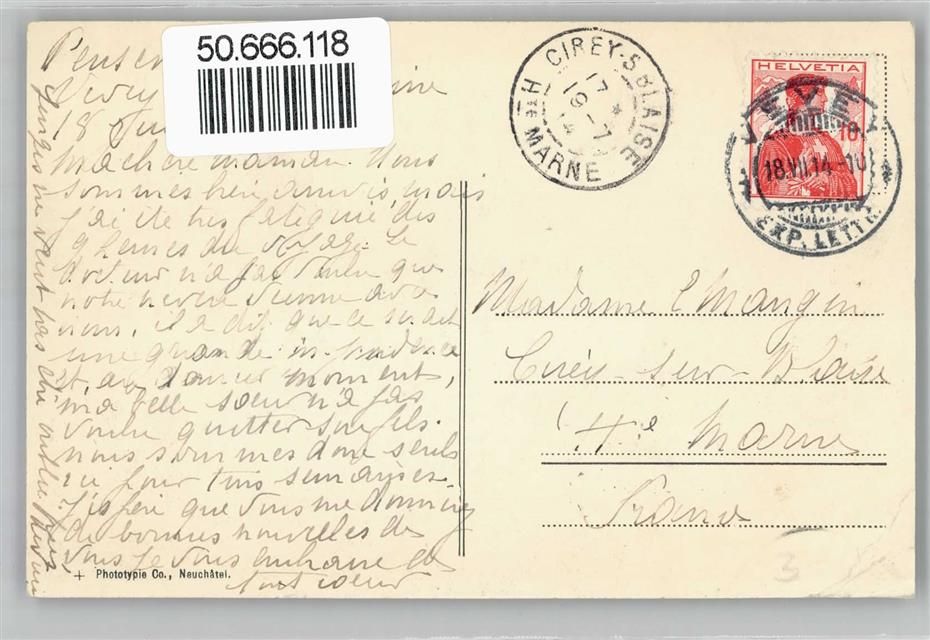 50.666.118
Pension
Vevey
18
Ma chère maman. Nous
sommes bien arrivés, mais
j'ai été très fatiguée des
9 heures de voyage. Le
docteur n'a pas voulu que
notre neveu vienne avec
nous, il a dit que ce serait
une grande imprudence
et au dernier moment,
ma belle sœur n'a pas
voulu quitter son fils.
nous sommes donc seuls
ici pour trois semaines.
J'espère que vous me donnerez
de bonnes nouvelles de
vous Je vous embrasse de
tout cœur
CIREY-S-BLAISE
17 *
19 - 7
14
Hte MARNE
HELVETIA
10
VEVEY
18.VII.14-10
EXP. LETTR.
Madame E Mangin
Cirey-sur-Blaise
Hte Marne
France
3
+ Phototypie Co., Neuchâtel.